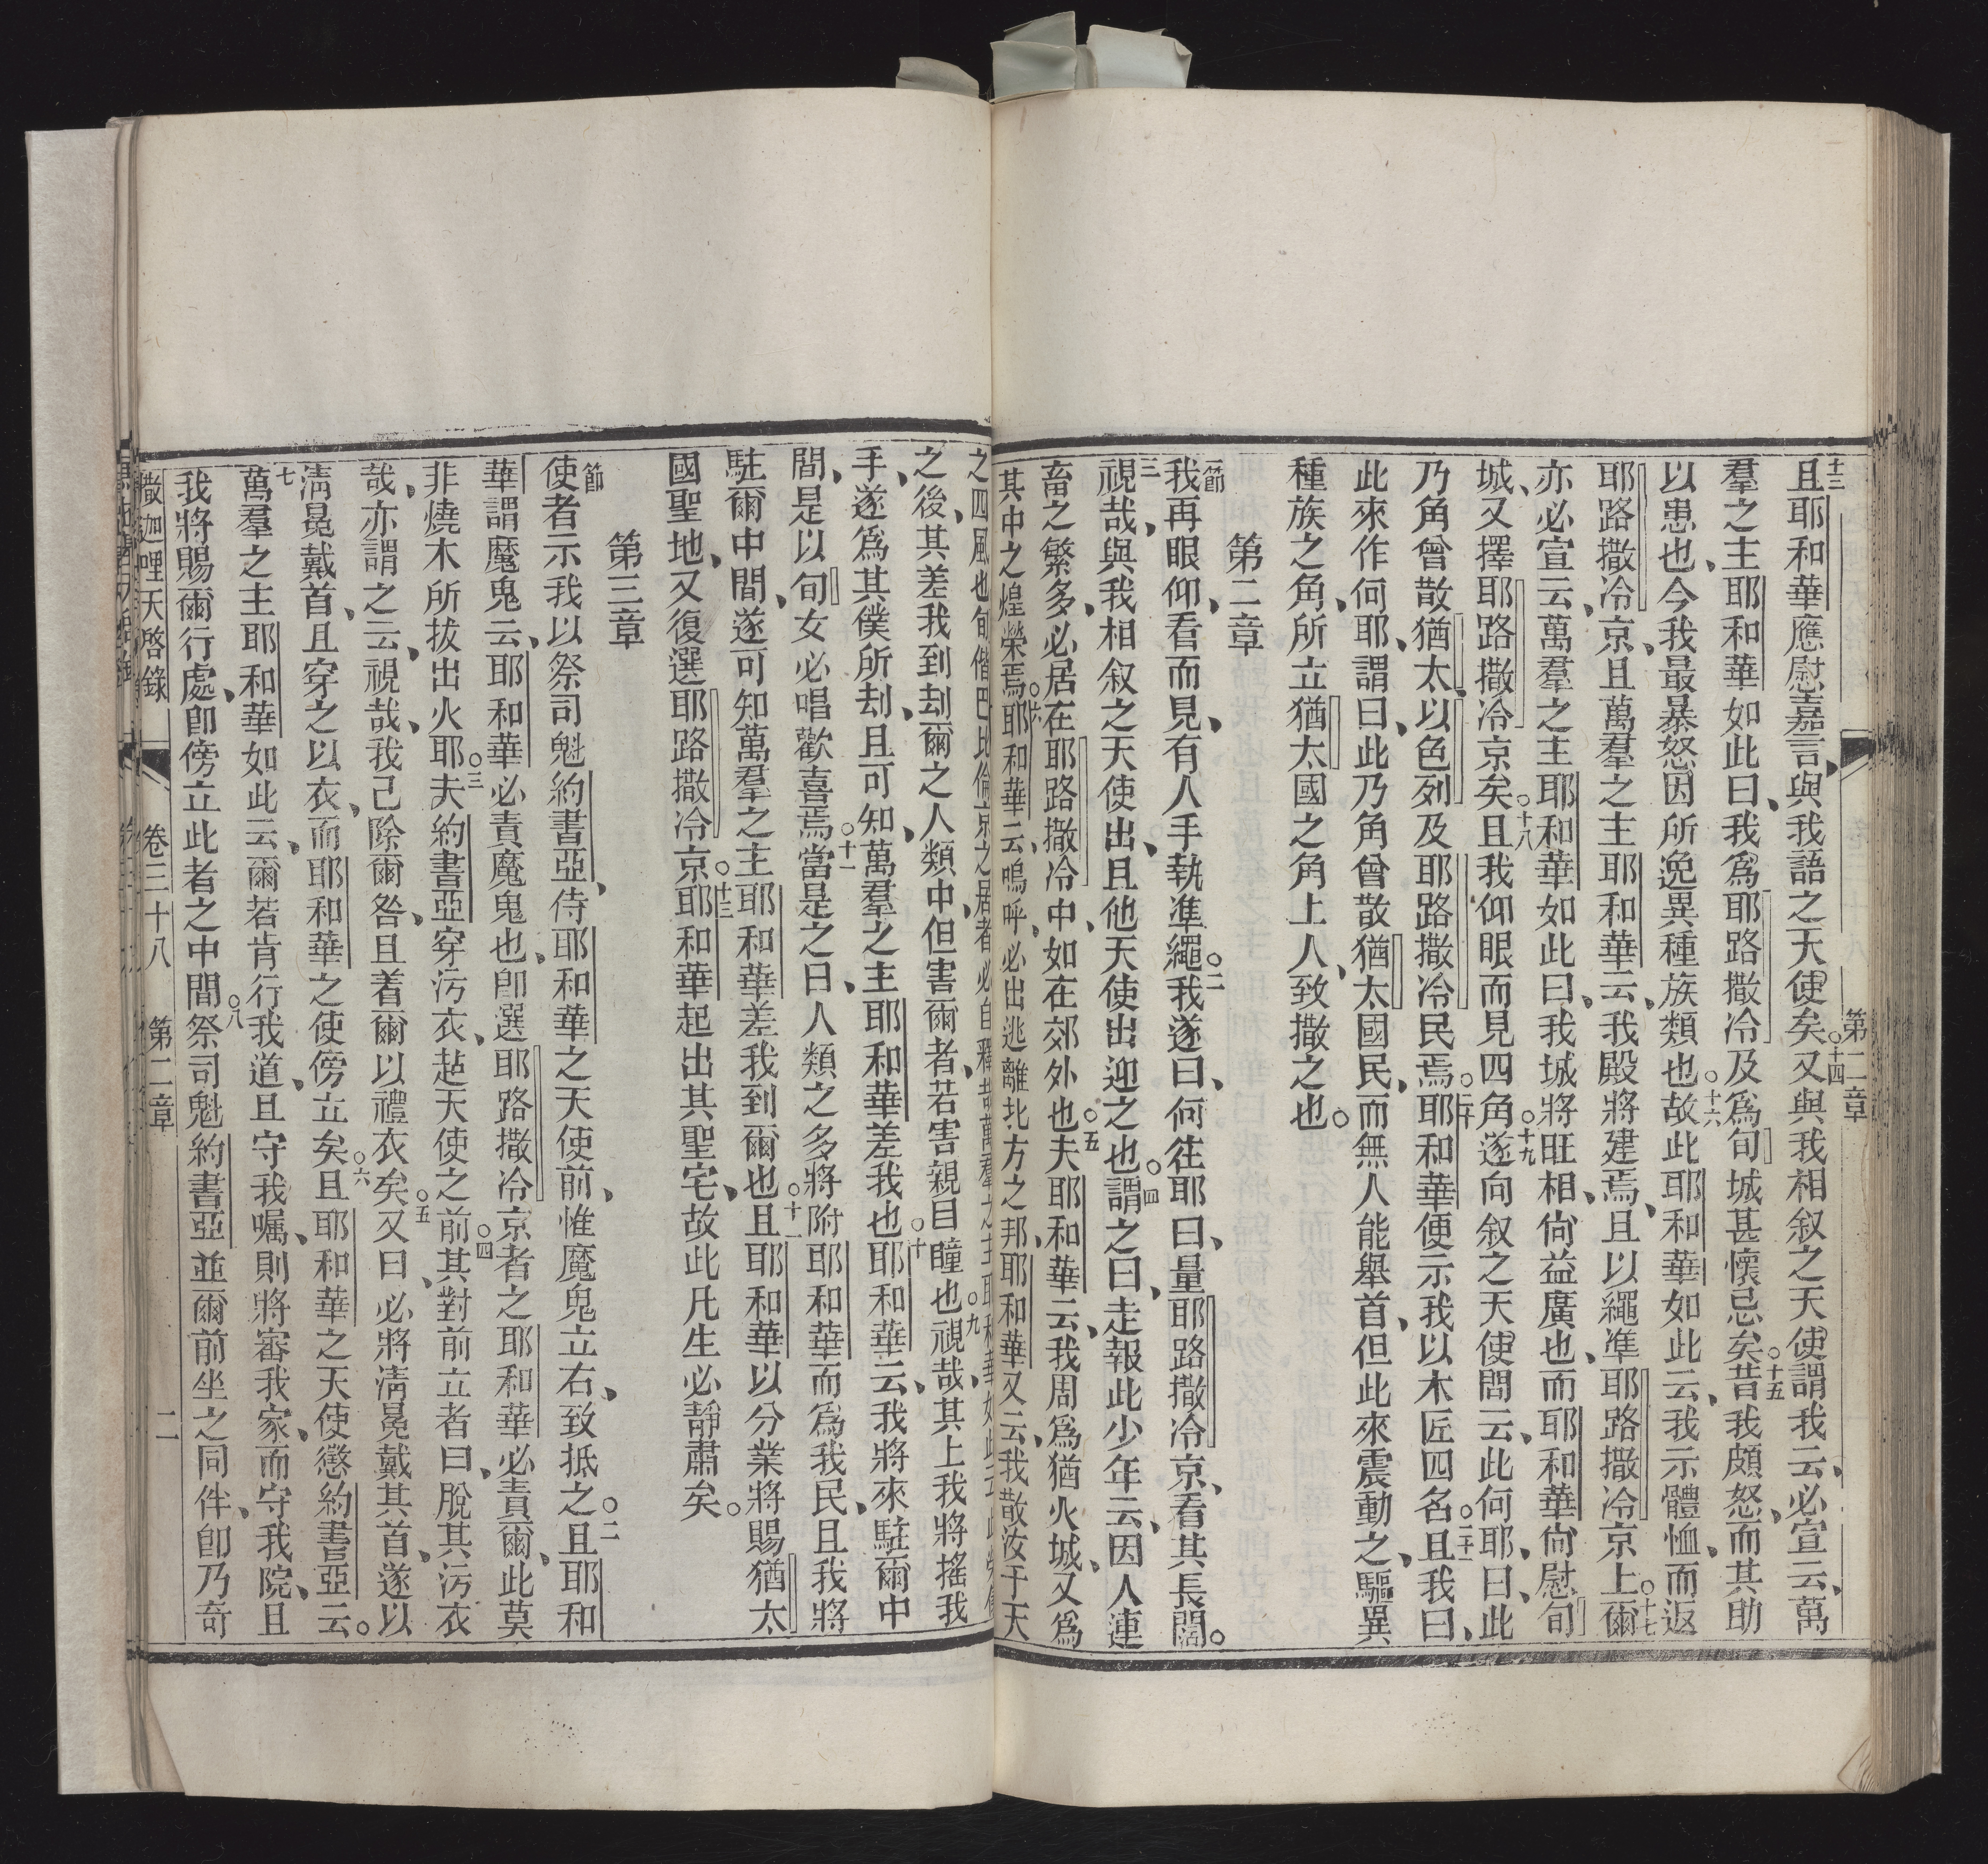 第二章
十三且耶和華應慰嘉言、與我語之天使矣。十四又與我相叙之天使謂我云、必宣云、萬
羣之主耶和華如此曰、我爲耶路撒冷及爲旬城甚懷忌矣。十五昔我頗怒、而其助
以患也、今我最暴怒因所逸異種族類也。十六故此耶和華如此云、我示體恤、而返
耶路撒冷京、且萬羣之主耶和華云、我殿將建焉、且以繩準耶路撒冷京上。十七爾
亦必宣云、萬羣之主耶和華如此曰、我城將旺相、尙益廣也、而耶和華尙慰旬
城、又擇耶路撒冷京矣。十八且我仰眼而見四角。十九遂向叙之天使問云、此何耶、曰、此
乃角曾散猶太、以色列及耶路撒冷民焉。二十耶和華便示我以木匠四名。二十一且我曰、
此來作何耶、謂曰、此乃角曾散猶太國民、而無人能舉首、但此來震動之、驅異
種族之角、所立猶太國之角上人、致撒之也。
第二章
一節我再眼仰、看而見、有人手執準繩。二我遂曰、何往耶、曰、量耶路撒冷京、看其長闊。
三視哉、與我相叙之天使出、且他天使出迎之也。四謂之曰、走報此少年云、因人連
畜之繁多、必居在耶路撒冷中、如在郊外也。五夫耶和華云、我周爲猶火城、又爲
其中之煌榮焉。六耶和華云、嗚呼、必出逃離北方之邦、耶和華又云、我散汝于天
之四風也旬偕巴比倫京之居者必自釋哉萬羣之主耶和華如此云
之後、其差我到刦爾之人類中、但害爾者、若害親目瞳也。九視哉、其上我將搖我
手、遂爲其僕所刦、且可知、萬羣之主耶和華差我也。十耶和華云、我將來駐爾中
間、是以旬女必唱歡喜焉。十一當是之日、人類之多將附耶和華而爲我民、且我將
駐爾中間、遂可知萬羣之主耶和華差我到爾也。十二且耶和華以分業將賜猶太
國聖地、又復選耶路撒冷京。十三耶和華起出其聖宅、故此凡生必靜肅矣。
第三章
節使者示我以祭司魁約書亞、侍耶和華之天使前、惟魔鬼立右、致抵之。二且耶和
華謂魔鬼云、耶和華必責魔鬼也、卽選耶路撒冷京者之耶和華必責爾、此莫
非燒木所拔出火耶。三夫約書亞穿污衣、赸天使之前。四其對前立者曰、脫其污衣
哉、亦謂之云、視哉、我己除爾咎、且着爾以禮衣矣。五又曰、必將淸冕戴其首、遂以
淸冕戴首、且穿之以衣、而耶和華之使傍立矣。六且耶和華之天使懲約書亞云。
七萬羣之主耶和華如此云、爾若肯行我道、且守我囑、則將審我家、而守我院、且
我將賜爾行處、卽傍立此者之中間。八祭司魁約書亞並爾前坐之同伴、卽乃奇
撒迦哩天啓錄 卷三十八 第二章 二